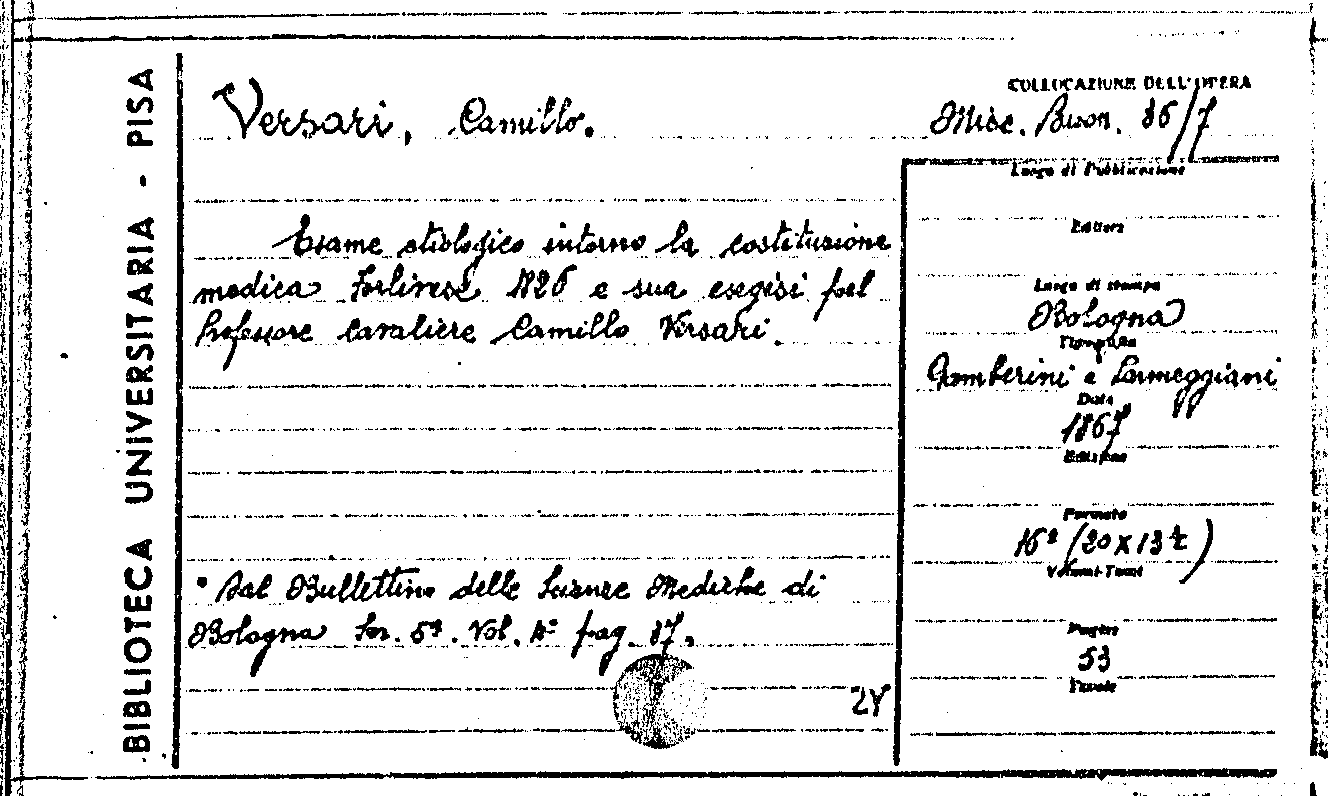 BIBLIOTECA UNIVERSITARIA - PISA
Versari, Camillo.
Esame etiologico intorno la costituzione
medica Forlivese 1826 e sua esegisi pel
Professore Cavaliere Camillo Versari.
• Dal Bullettino delle Scienze Mediche di
Bologna Ser. 5ª. Vol. 4º pag. 37.
COLLOCAZIONE DELL'OPERA
Misc. Buon. 36/7
Luogo di Pubblicazione
Editore
Luogo di stampa
Bologna
Tipografia
Gamberini e Parmeggiani
Data
1867
Edizione
Formato
16º (20 x 13 ½)
Volumi-Tomi
Pagine
53
Tavole